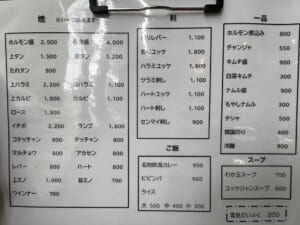 焼
刺
一品
ホルモン盛 2,500
4,000
上タン 1,500
1,200
たれタン 800
上ハラミ 2,200
1,600
上カルビ 1,800
カルビ 1,100
ロース 1,500
イチボ 2,200 ランプ 1,800
コテッチャン 800 テッチャン 800
マルチョウ 800 アカセン 800
レバー 800 ハート 800
上ミノ 1,000 並ミノ 700
ウインナー 700
レバー 1,100
ユッケ 1,800
ハラミユッケ 1,800
ツラミ刺し 1,100
ハートユッケ 1,100
ハート刺し 1,100
センマイ刺し 900
ご飯
名物牧場カレー 900
ビビンバ 900
ライス
大 500 中 400 小 300
ホルモン煮込み 800
チャンジャ 550
キムチ盛 900
白菜キムチ 300
ナムル盛 900
もやしナムル 300
チシャ 500
韓国のり 400
冷麺 900
スープ
わか玉スープ 700
ユッケジャンスープ 800
雪見だいふく 200